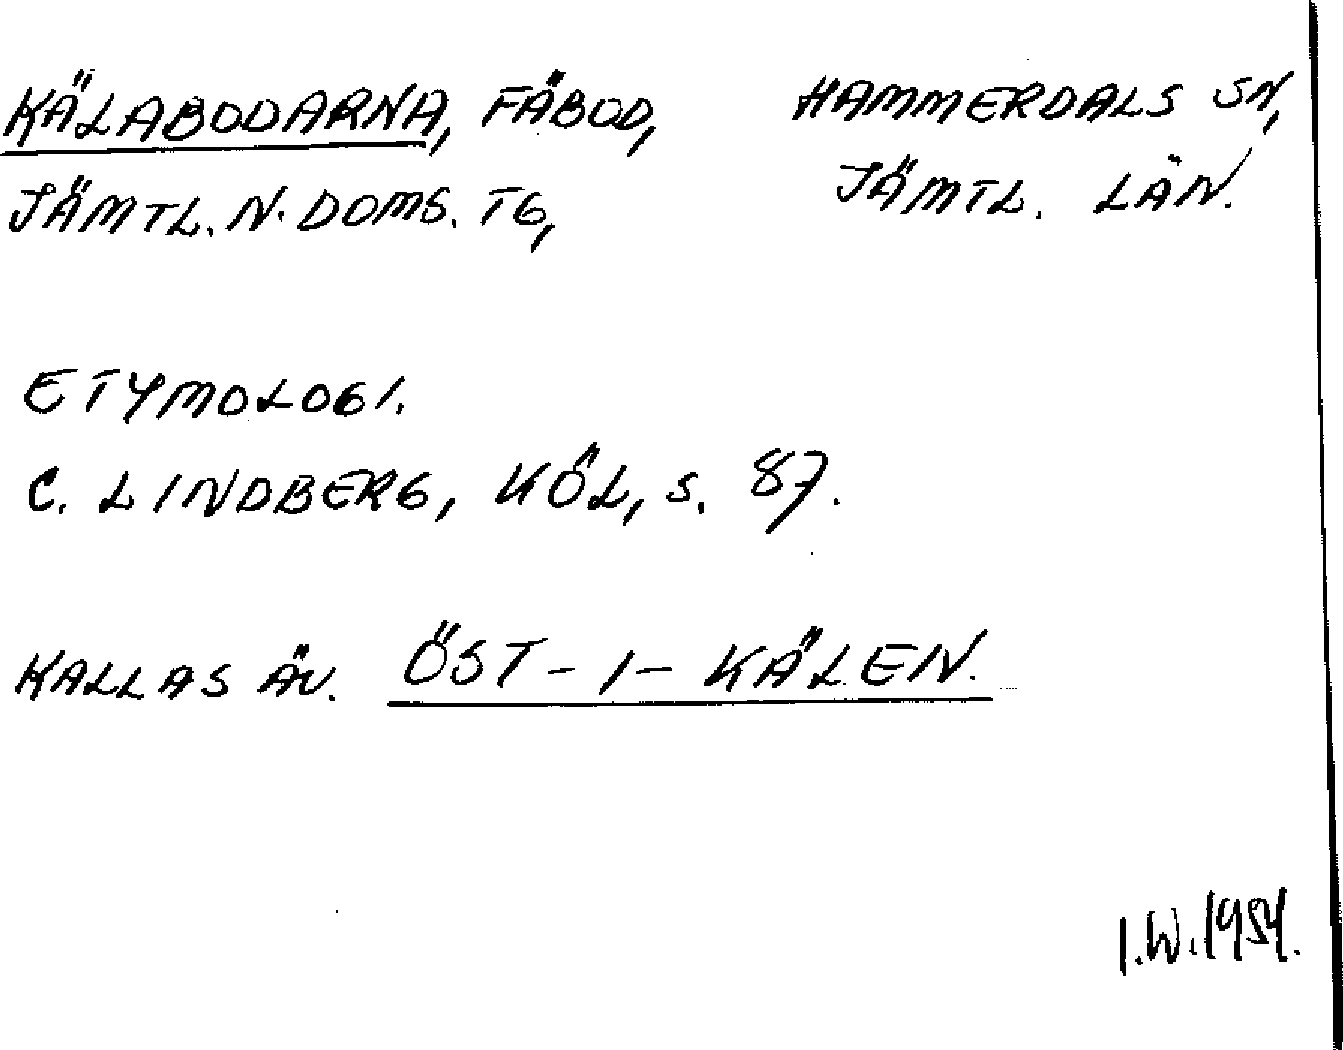 KÄLABODARNA, FÄBOD,
JÄMTL. N. DOMS. TG,
HAMMERDALS SN,
JÄMTL. LÄN.
ETYMOLOGI.
C. LINDBERG, KÖL, S. 87.
KALLAS ÄV. ÖST-I-KÄLEN.
I.W. 1954.